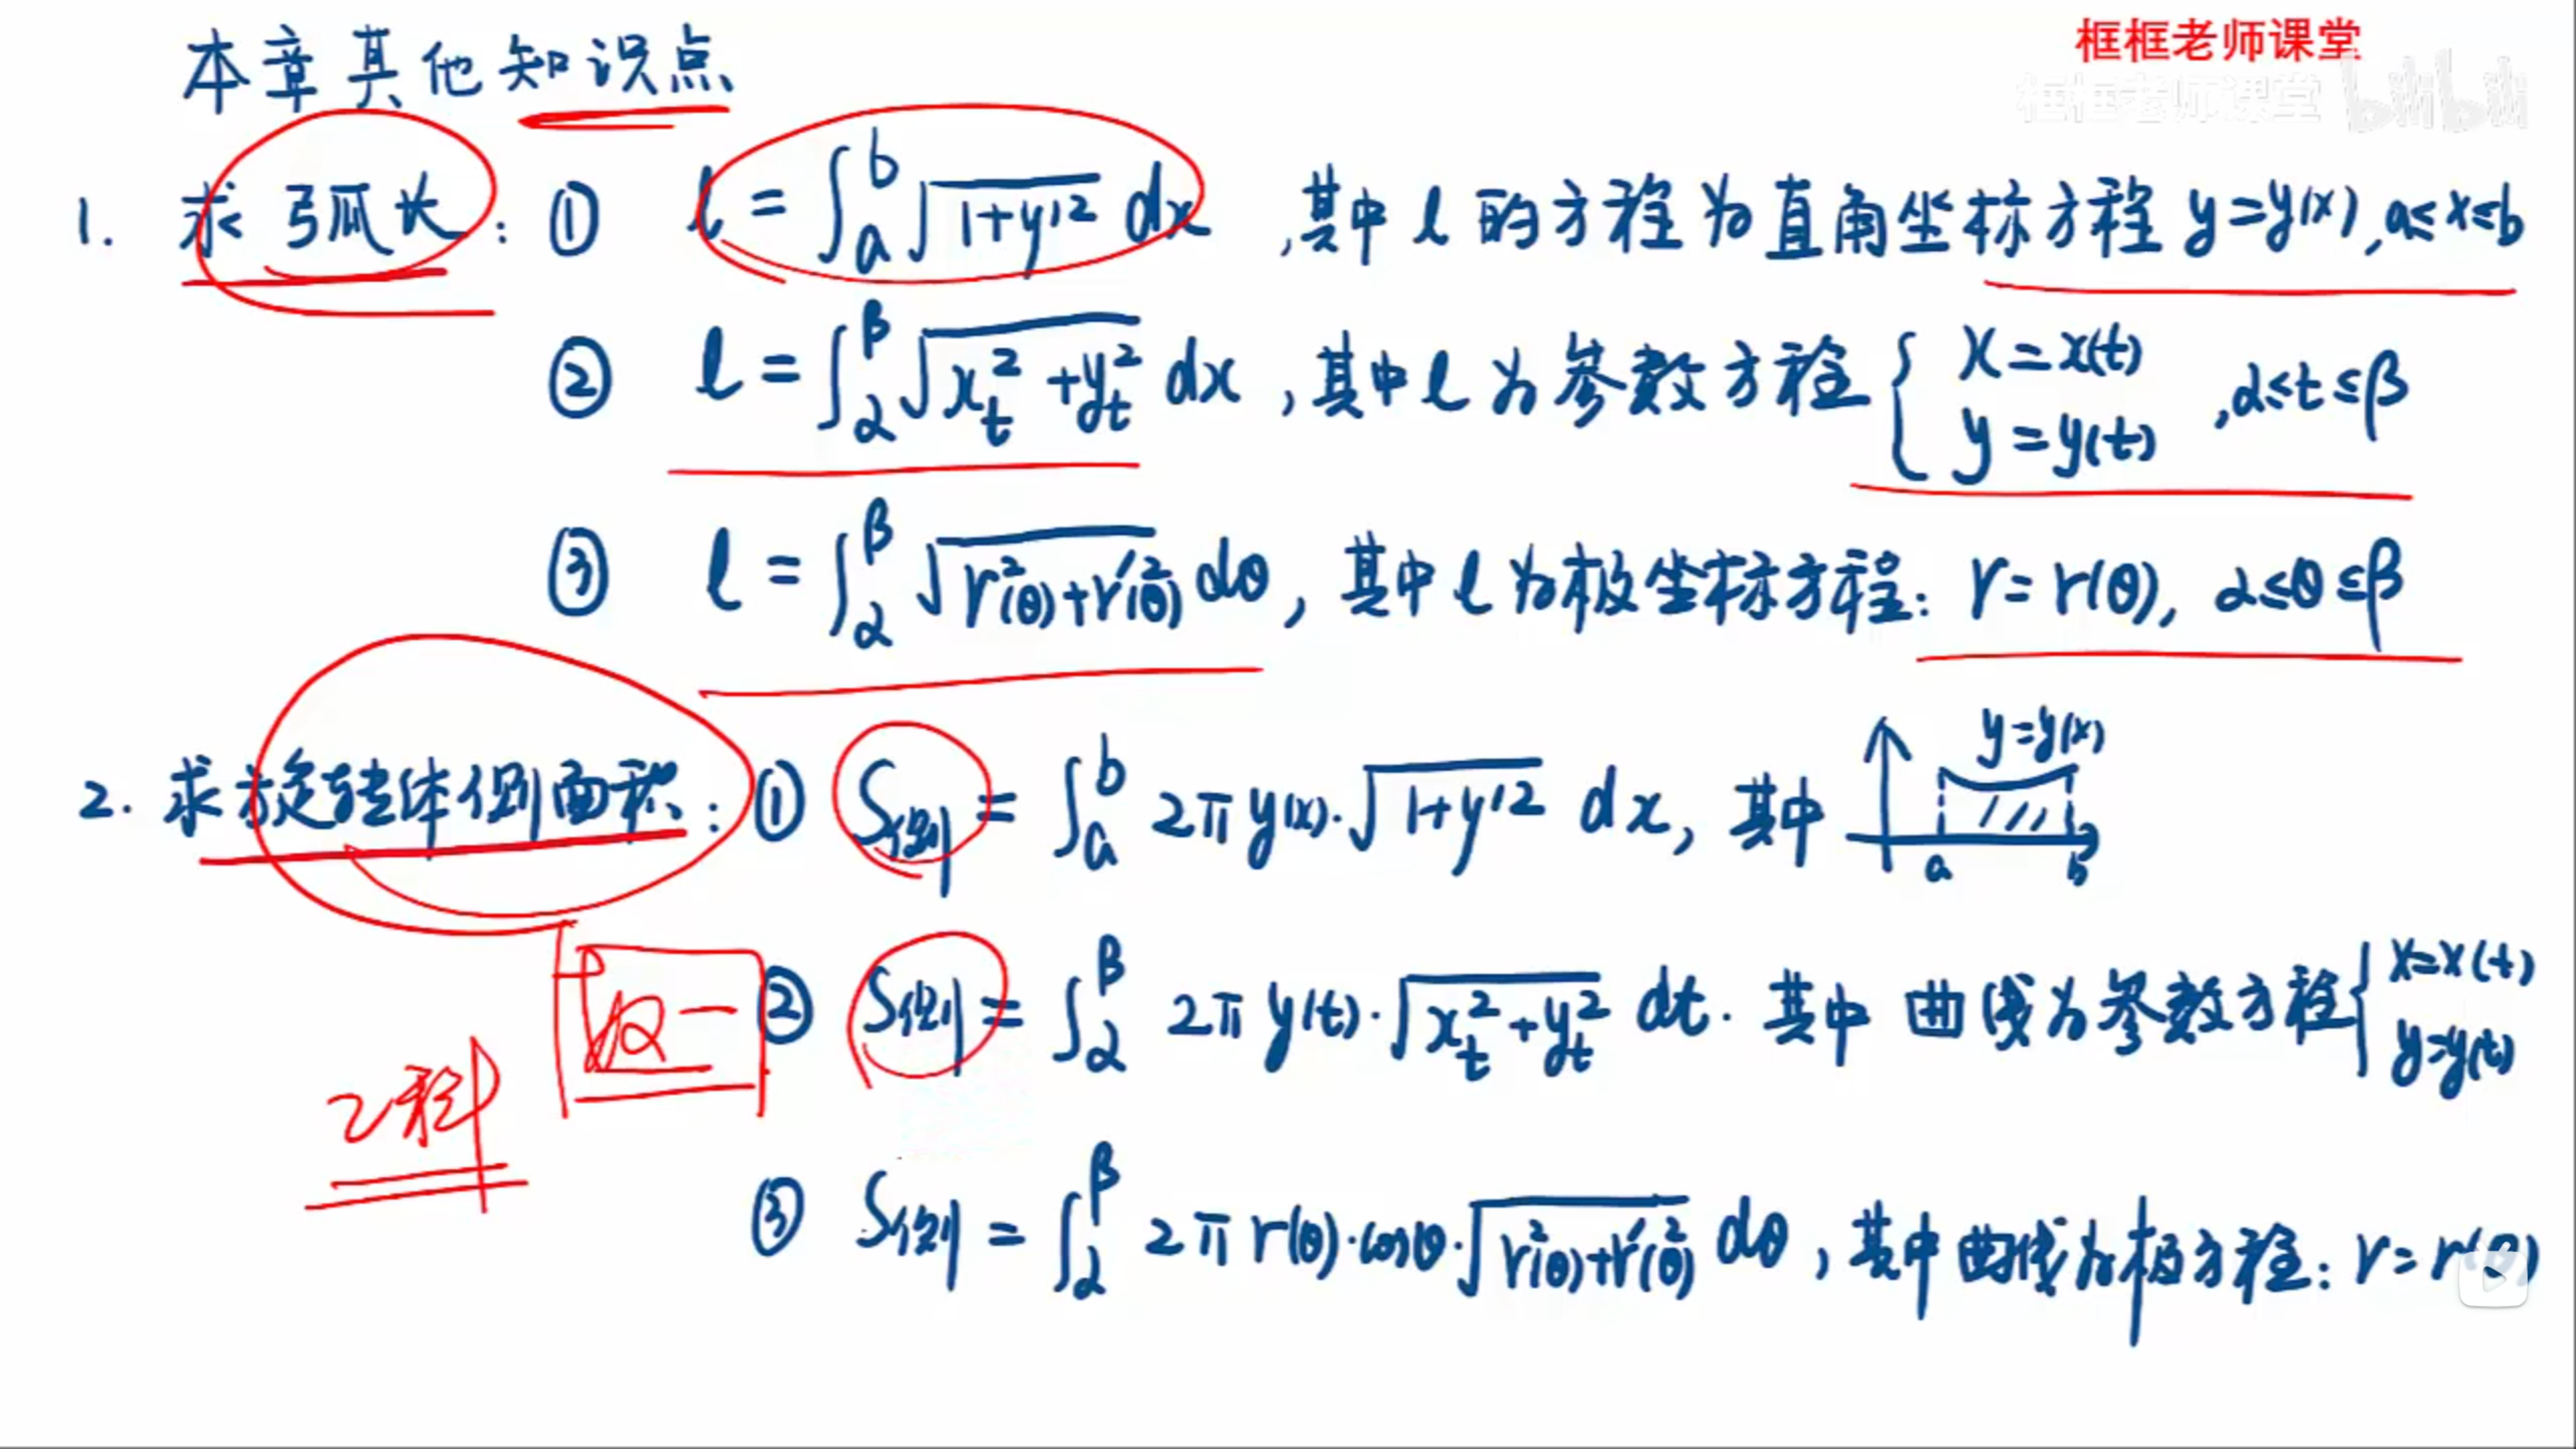 框框老师课堂
框框老师课堂 bilibili
本章其他知识点
1. 求弧长：① l = ∫_a^b √(1+y'²) dx ，其中 l 的方程为直角坐标方程 y=y(x), a≤x≤b
② l = ∫_α^β √(x_t²+y_t²) dx ，其中 l 为参数方程 { x=x(t) y=y(t) , α≤t≤β
③ l = ∫_α^β √(r²(θ)+r'²(θ)) dθ ，其中 l 为极坐标方程：r=r(θ), α≤θ≤β
2. 求旋转体侧面积：① S侧 = ∫_a^b 2π y(x)·√(1+y'²) dx，其中 y=y(x) a b
② S侧 = ∫_α^β 2π y(t)·√(x_t²+y_t²) dt. 其中 曲线为参数方程 { x=x(t) y=y(t)
数一
2科
③ S侧 = ∫_α^β 2π r(θ)·cosθ·√(r²(θ)+r'²(θ)) dθ，其中曲线为极方程：r=r(θ)